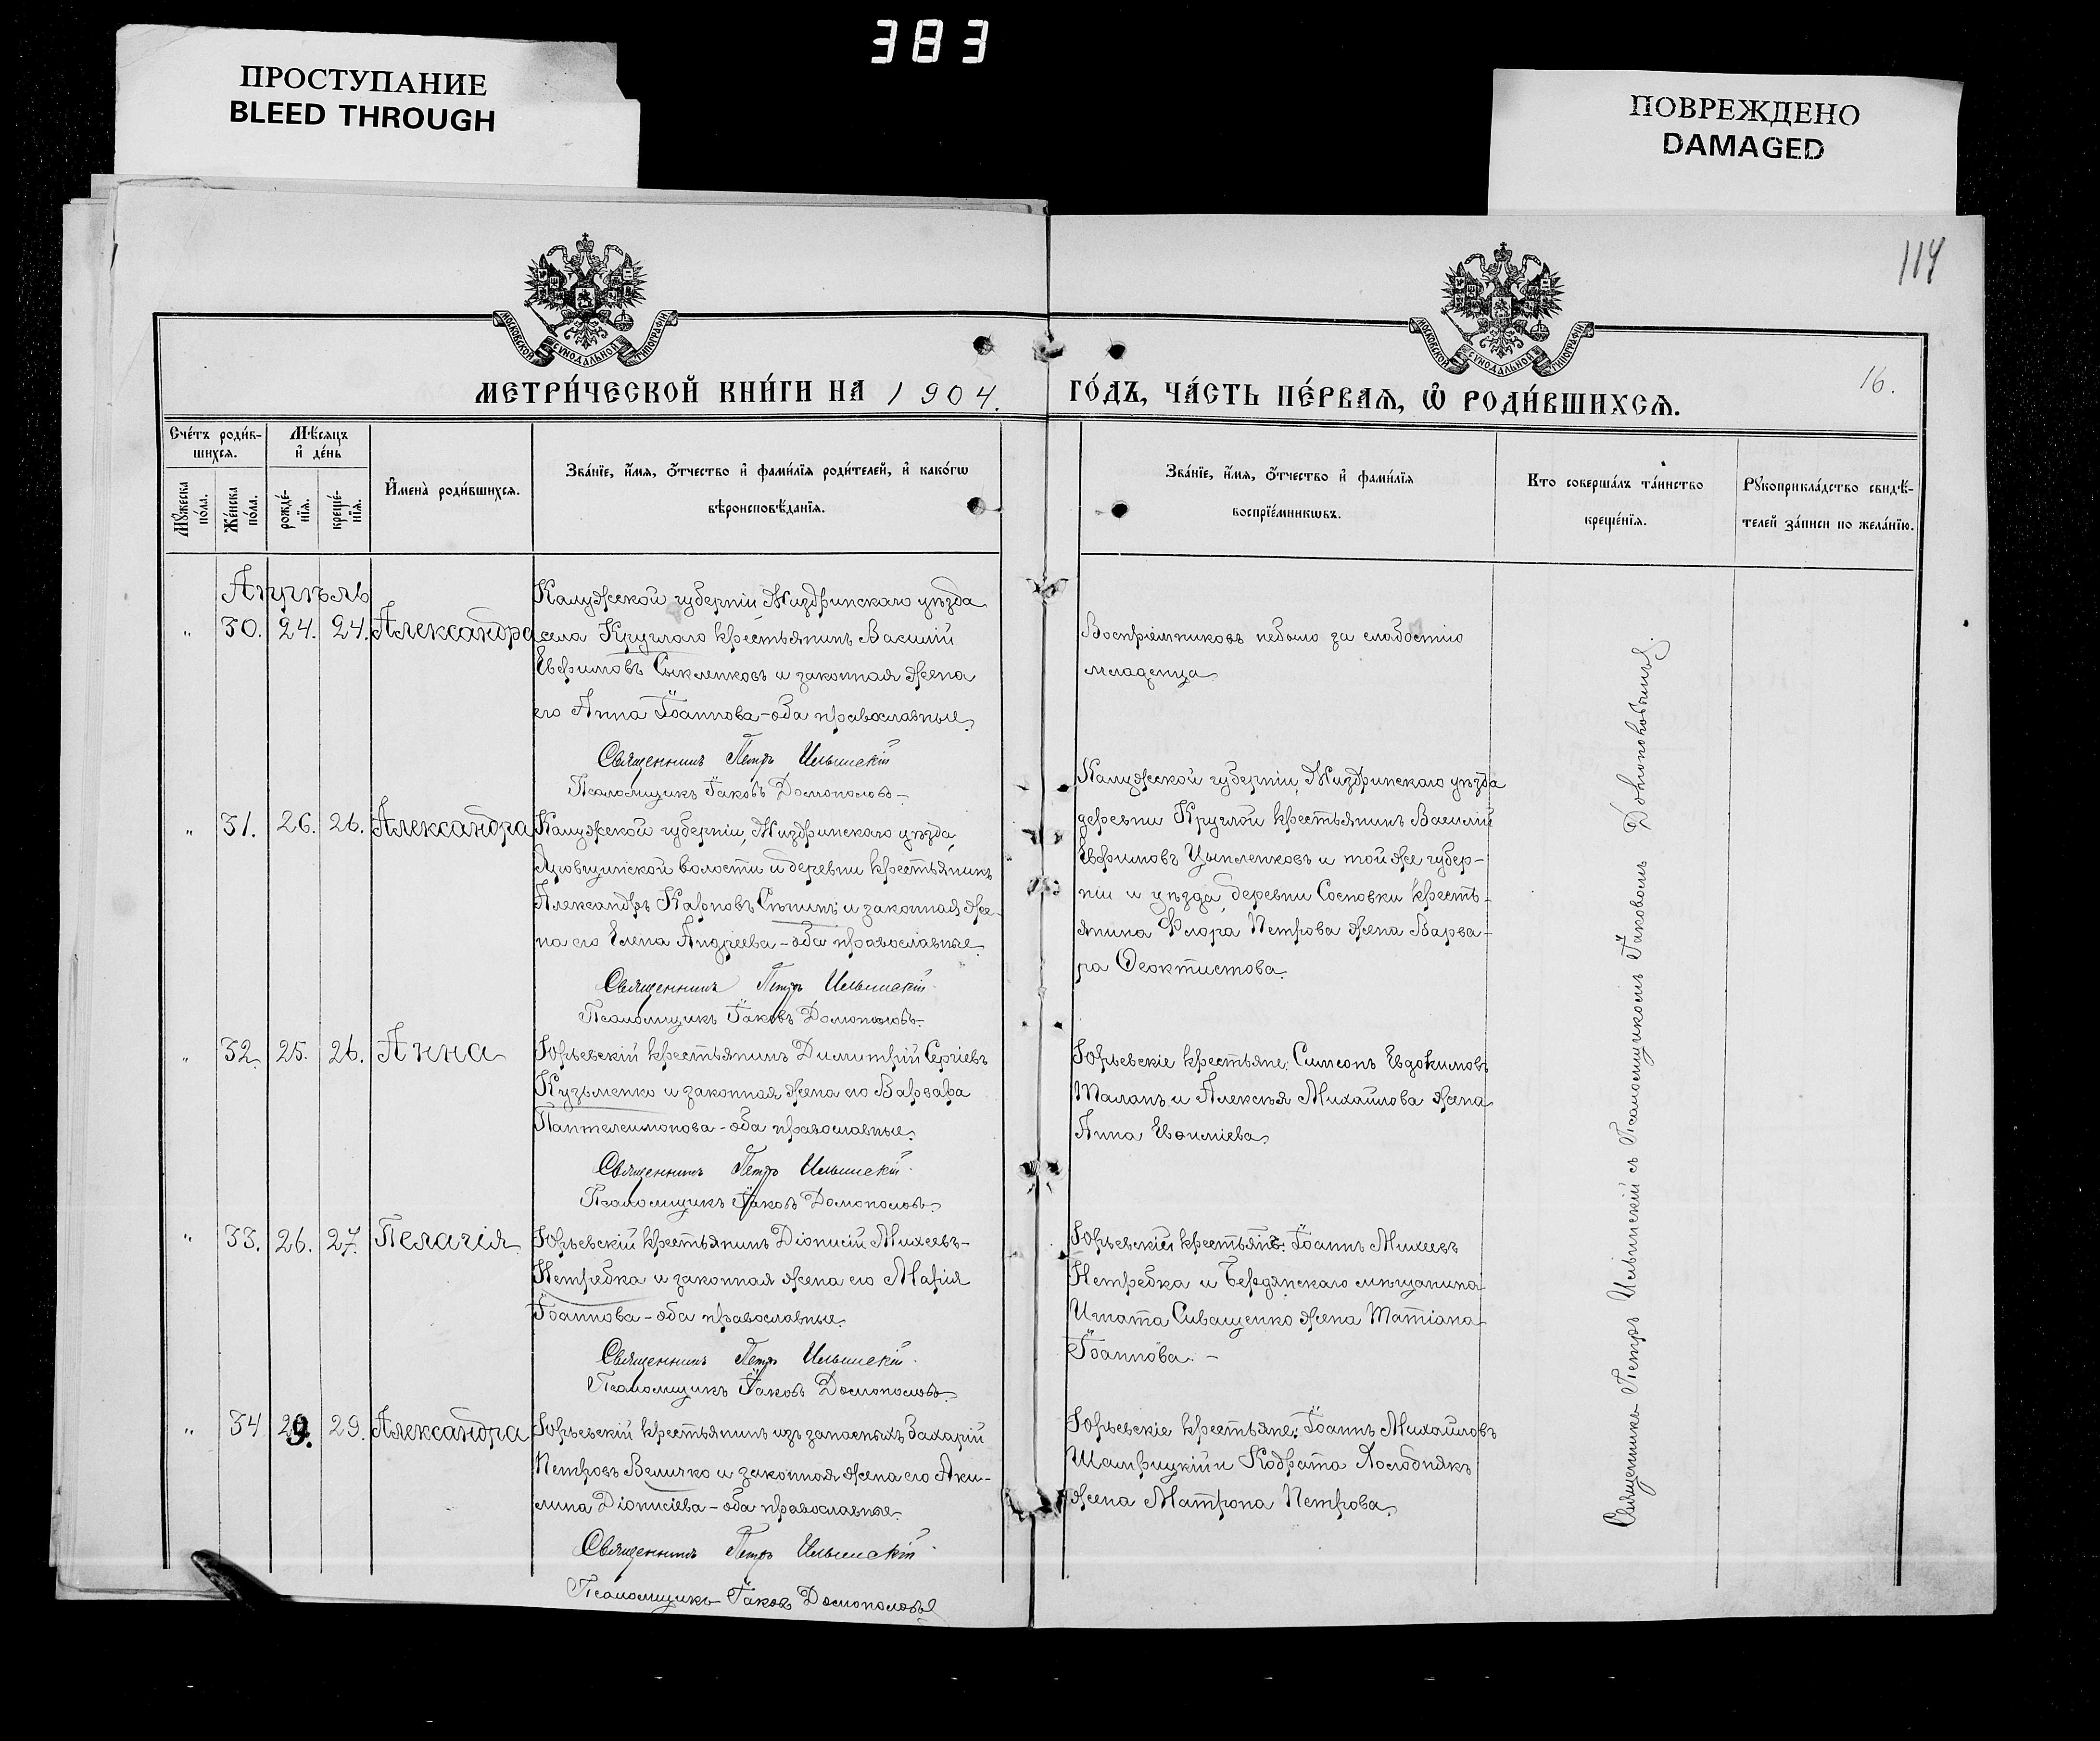 383
ПРОСТУПАНИЕ
BLEED THROUGH
ПОВРЕЖДЕНО
DAMAGED
114
МОСКОВСКОЙ СѴНОДАЛЬНОЙ ТИПОГРАФІИ
МОСКОВСКОЙ СѴНОДАЛЬНОЙ ТИПОГРАФІИ
МЕТРИ́ЧЕСКОЙ КНИ́ГИ НА 1904. ГО́ДЪ, ЧА́СТЬ ПЕ́РВАѦ, Ѡ҆ РОДИ́ВШИХСѦ.
16.
Сче́тъ роди́в-
шихсѧ.
Мѣ́сѧцъ
и҆ де́нь
Мꙋ́жеска
по́ла.
Же́нска
по́ла.
рожде́-
нїѧ.
креще́-
нїѧ.
И҆мена̀ роди́вшихсѧ.
Зва́нїе, и҆́мѧ, ѻ҆́тчество и҆ фами́лїѧ роди́телей, и҆ како́гѡ
вѣроисповѣ́данїѧ.
Зва́нїе, и҆́мѧ, ѻ҆́тчество и҆ фами́лїѧ
воспрїе́мникѡвъ.
Кто соверша́лъ та́инство
креще́нїѧ.
Рꙋкоприкла́дство свидѣ́-
телей за́писи по жела́нїю.
Апрѣль
" 30. 24. 24. Александра
Калужской губерніи Жиздринскаго уѣзда
села Круглаго крестьянинъ Василій
Евфимовъ и законная жена
его Анна Іоаннова - оба православные.
Священникъ Петръ Ильинскій
Псаломщикъ Іаковъ
Воспріемниковъ небыло за слабостію
младенца
" 31. 26. 26. Александра
Калужской губерніи, Жиздринскаго уѣзда,
волости и деревни крестьянинъ
Александръ Карповъ и законная же-
на его Елена Андреева - оба православные.
Священникъ Петръ Ильинскій
Псаломщикъ Іаковъ
Калужской губерніи, Жиздринскаго уѣзда
деревни Круглой крестьянинъ Василій
Евфимовъ Цыпленковъ и той же губер-
ніи и уѣзда, деревни Сосновки кресть-
янина Флора Петрова жена Варва-
ра Ѳеоктистова.
" 32. 25. 26. Анна
Юрьевскій крестьянинъ Димитрій Сергіевъ
Кузьменко и законная жена его Варвара
Пантелеимонова - оба православные.
Священникъ Петръ Ильинскій
Псаломщикъ Іаковъ
Юрьевскіе крестьяне: Симеонъ Евдокимовъ
Маланъ и Алексѣя Михайлова жена
Анна Евѳиміева.
" 33. 26. 27. Пелагія
Юрьевскій крестьянинъ Діонисій Михеевъ-
Нетребка и законная жена его Марія
Іоаннова - оба православные.
Священникъ Петръ Ильинскій
Псаломщикъ Іаковъ
Юрьевскій крестьянъ: Іоаннъ Михеевъ
Нетребка и Бердянскаго мѣщанина
Игната Сиващенко жена Татіана
Іоаннова. -
" 34 29. 29. Александра
Юрьевскій крестьянинъ изъ запасныхъ Захарій
Петровъ Величко и законная жена его Аки-
лина Діонисіева - оба православные.
Священникъ Петръ Ильинскій
Псаломщикъ Іаковъ
Юрьевскіе крестьяне: Іоаннъ Михайловъ
и Кодрата Холобнякъ
жена Матрона Петрова.
Священникъ Петръ Ильинскій съ Псаломщикомъ Іаковомъ